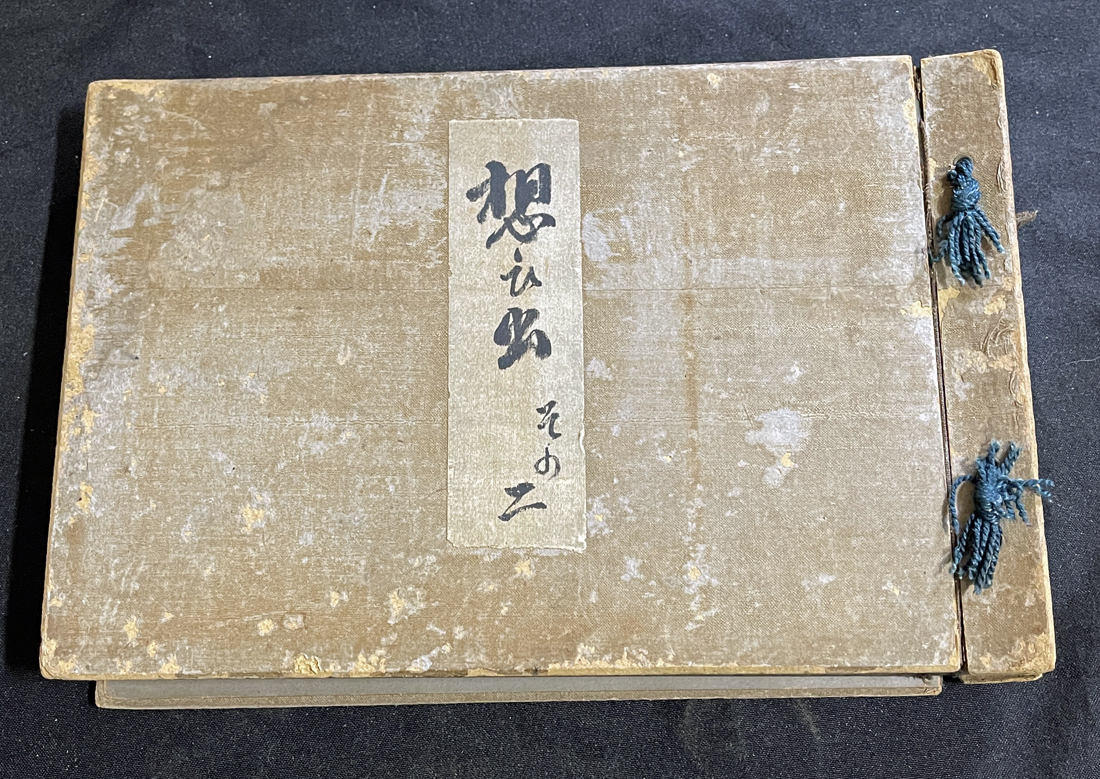 想ひ出
その二